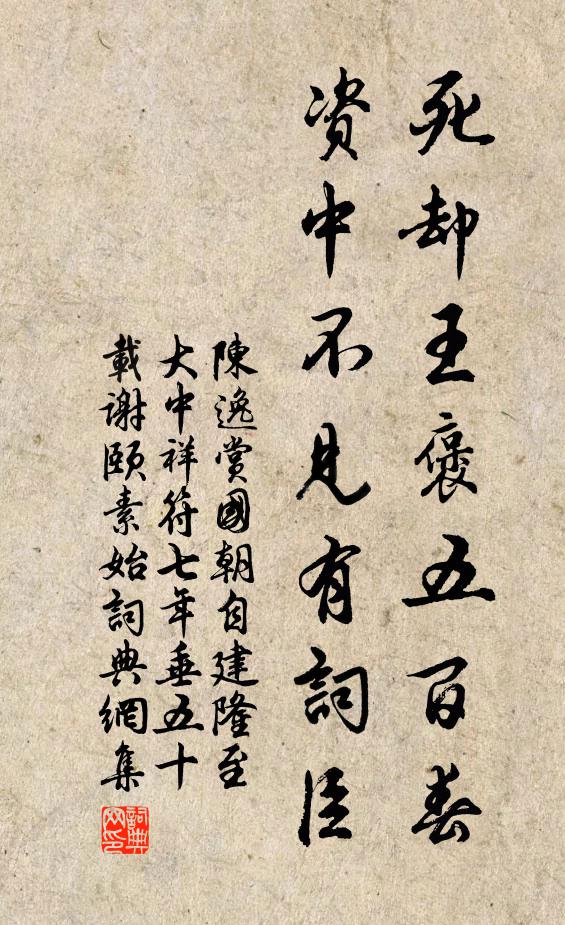 死却王褒五百春
资中不見有詞臣
陳逸賞國朝自建隆至
大中祥符七年垂五十
載謝頤素始詞典網集
詞典
网印